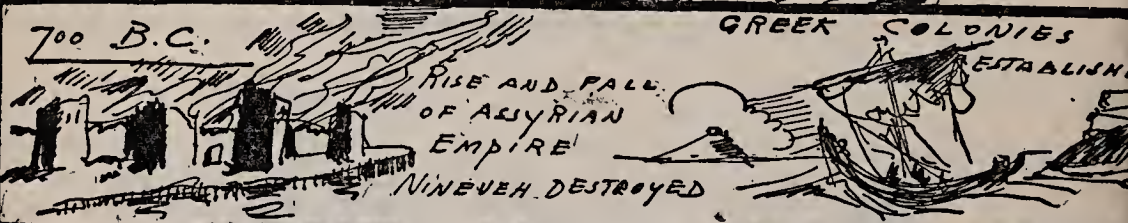 700 B.C.
RISE AND FALL
OF ASSYRIAN
EMPIRE
NINEVEH DESTROYED
GREEK COLONIES
ESTABLISH